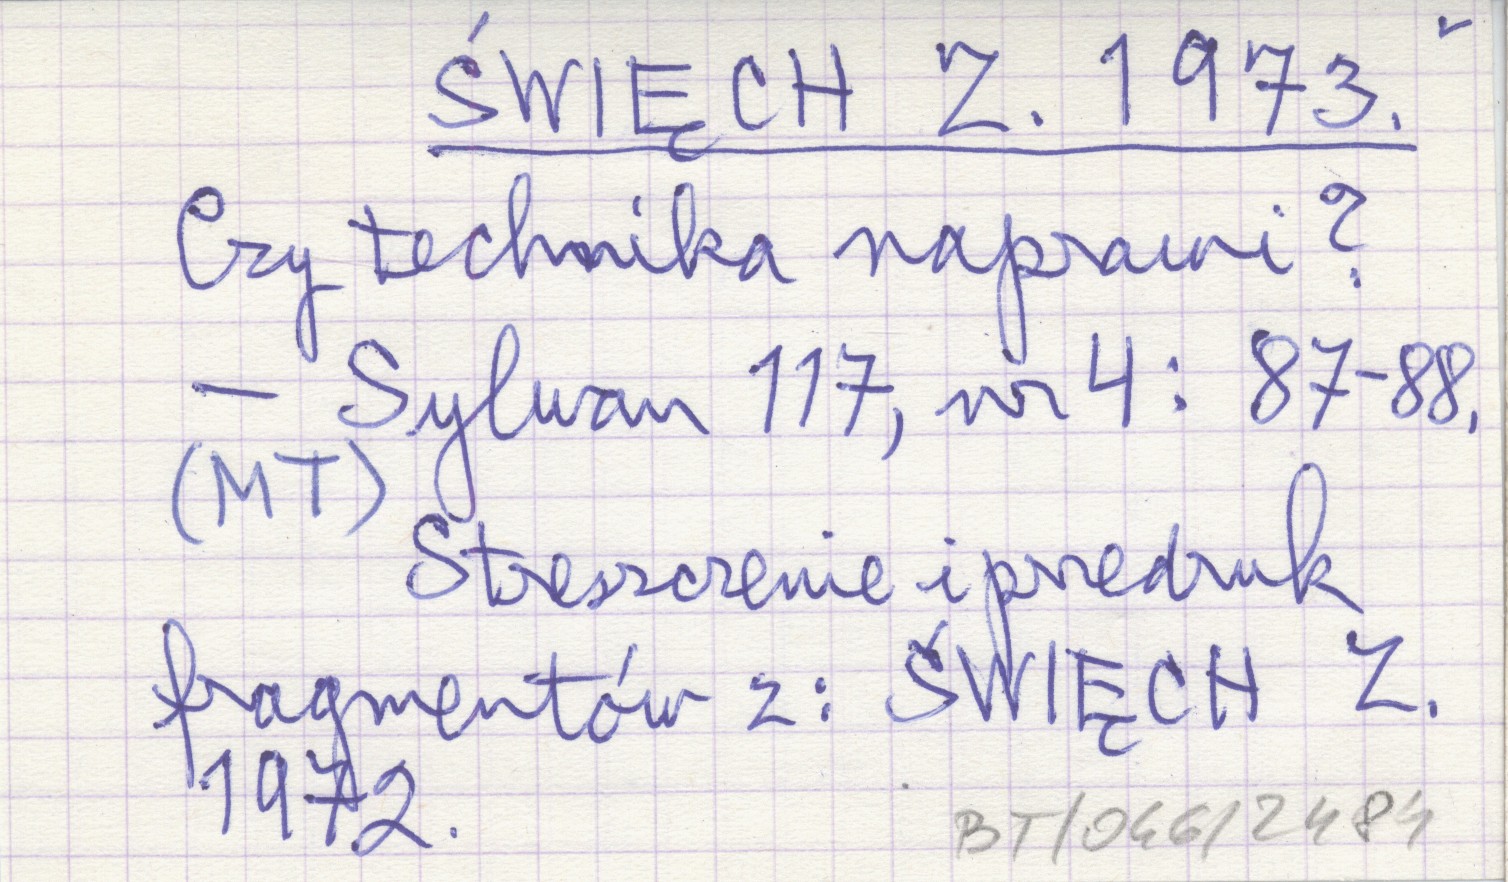 ŚWIĘCH Z. 1973.
Czy technika naprawi?
— Sylwan 117, nr 4: 87-88,
(MT)
Streszczenie i przedruk
fragmentów z: ŚWIĘCH Z.
1972.
BT/046/2484